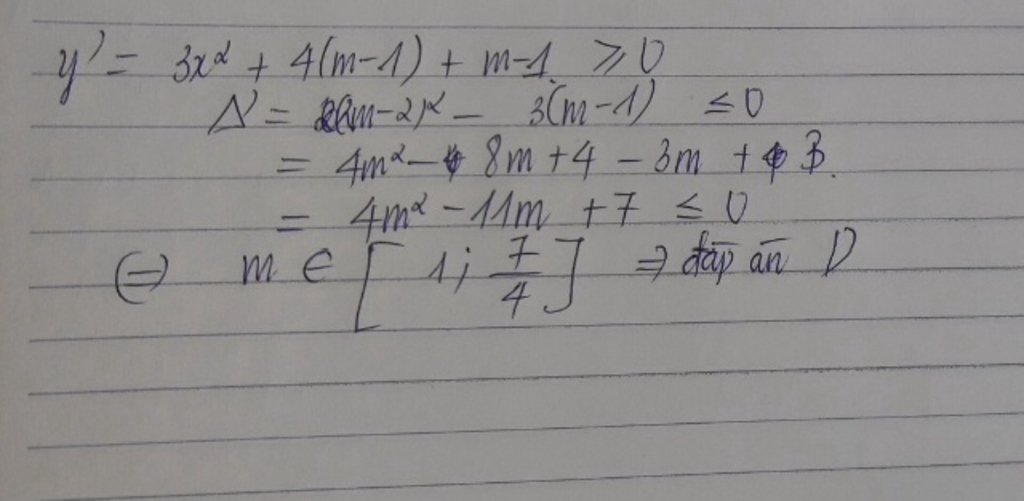 y' = 3x² + 4(m-1) + m-1 ≥ 0
Δ' = (2m-2)² - 3(m-1) ≤ 0
= 4m² - 8m + 4 - 3m + 3.
= 4m² - 11m + 7 ≤ 0
⇔ m ∈ [1; 7/4] ⇒ đáp án D